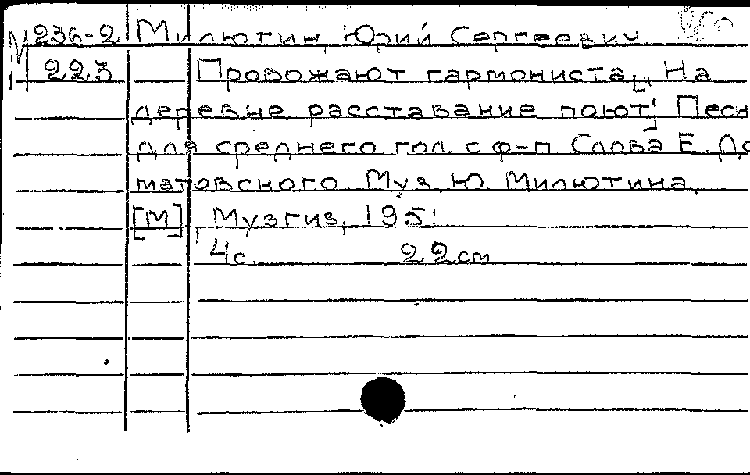 М 236-2 Милютин, Юрий Сергеевич
223 Провожают гармониста [„На
деревне расставание поют"] Песн
для среднего гол. с ф-п Слова Е. До
матовского. Муз. Ю. Милютина.
[М], Музгиз, 1951
4с. 22 см